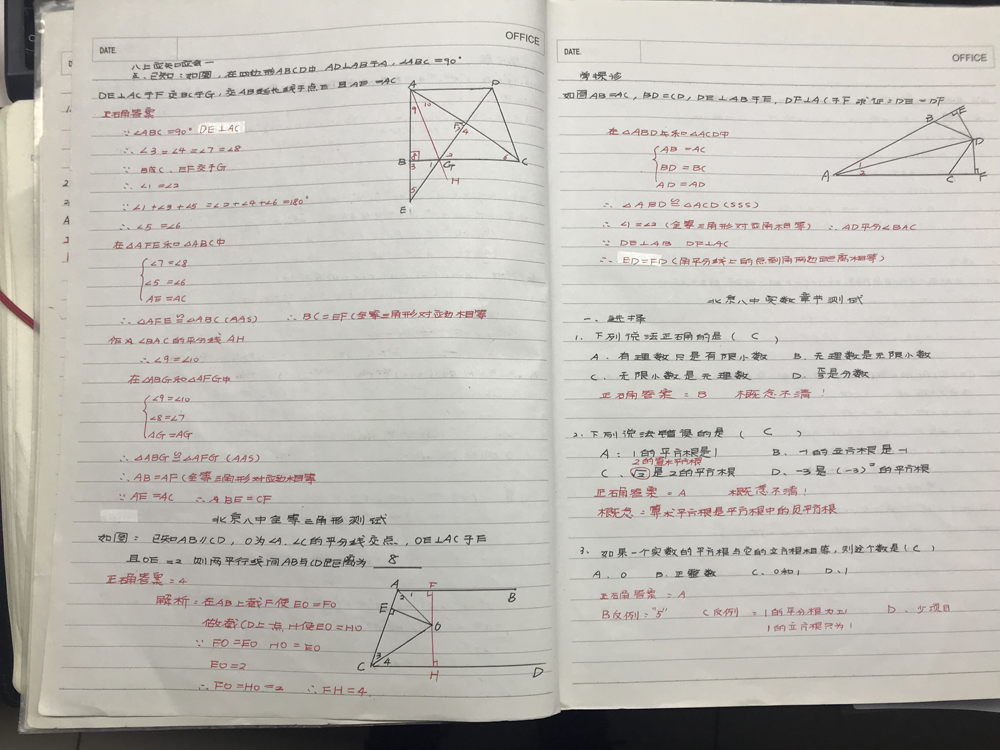 DATE
OFFICE
八上应知应会一
4. 已知：如图，在四边形ABCD中 AD⊥AB于A，∠ABC=90°
DE⊥AC于F 交BC于G，交AB延长线于点E 且AE=AC
正确答案
∵∠ABC=90° DE⊥AC
∴∠3=∠4=∠7=∠8
∵ BC、EF交于G
∴∠1=∠2
∵∠1+∠3+∠5=∠2+∠4+∠6=180°
∴∠5=∠6
在△AFE和△ABC中
∠7=∠8
∠5=∠6
AE=AC
∴△AFE≌△ABC(AAS) ∴BC=EF(全等三角形对应边相等
作∠BAC的平分线AH
∴∠9=∠10
在△ABG和△AFG中
∠9=∠10
∠8=∠7
AG=AG
∴△ABG≌△AFG(AAS)
∴AB=AF(全等三角形对应边相等
∵AE=AC ∴BE=CF
A D 9 10 F 4 B 3 1 G 2 6 C 5 H E
北京八中全等三角形测试
如图：已知AB∥CD，O为∠A、∠C的平分线交点，OE⊥AC于E
且OE=2 则两平行线间AB与CD距离为 8
正确答案=4
解析：在AB上截F使EO=FO
做截CD上一点H使EO=HO
∵ FO=EO HO=EO
EO=2
∴FO=HO=2 ∴FH=4
A F B 2 1 E O 3 4 C H D
DATE
OFFICE
学探诊
如图AB=AC，BD=CD，DE⊥AB于E，DF⊥AC于F 求证：DE=DF
在△ABD和△ACD中
AB=AC
BD=BC
AD=AD
∴△ABD≌△ACD(SSS)
∴∠1=∠2(全等三角形对应角相等) ∴AD平分∠BAC
∵ DE⊥AB DF⊥AC
∴ ED=FD(角平分线上的点到角两边距离相等)
E B D A 1 2 C F
北京八中实数章节测试
一、选择
1、下列说法正确的是( C )
A、有理数只是有限小数 B、无理数是无限小数
C、无限小数是无理数 D、是分数
正确答案=B 概念不清！
2、下列说法错误的是( C )
A：1的平方根是1 B、-1的立方根是-1
2的算术平方根
C、√2是2的平方根 D、-3是(-3)²的平方根
正确答案=A 概念不清！
概念：算术平方根是平方根中的正平方根
3、如果一个实数的平方根与它的立方根相等，则这个数是( C )
A、0 B、正整数 C、0和1 D、1
正确答案=A
B反例："5" C反例=1的平方根为±1 D、少项目
1的立方根只为1